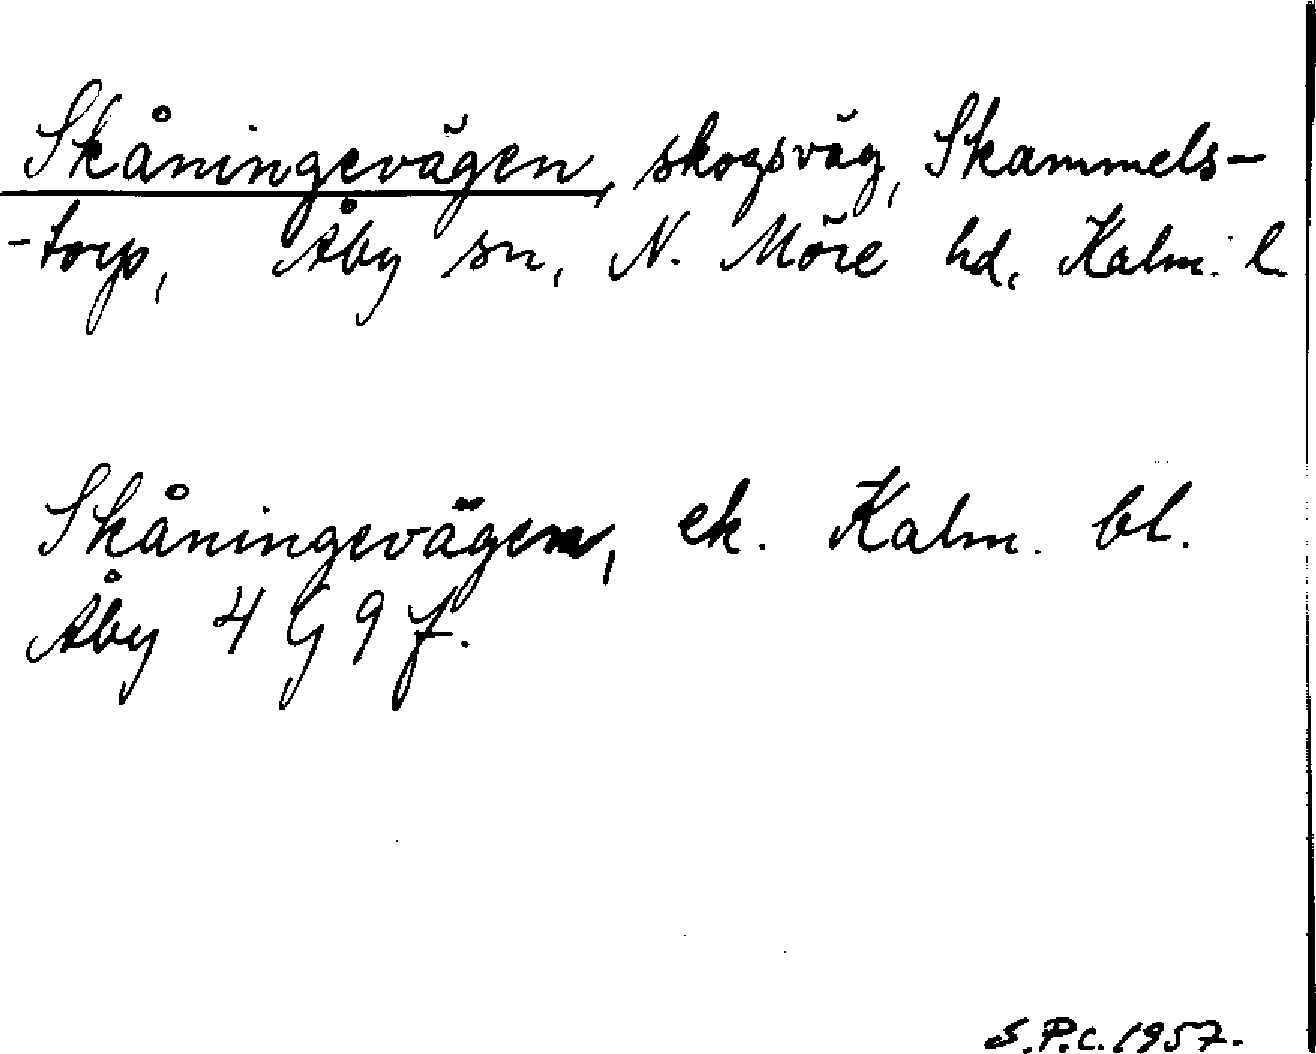 Skåningevägen, skogsväg, Skammels-
-torp, Åby sn, N. Möre hd, Kalm. l.
Skåningevägen, ek. Kalm. bl.
Åby 4 G 9 f.
S.P.C. 1957.